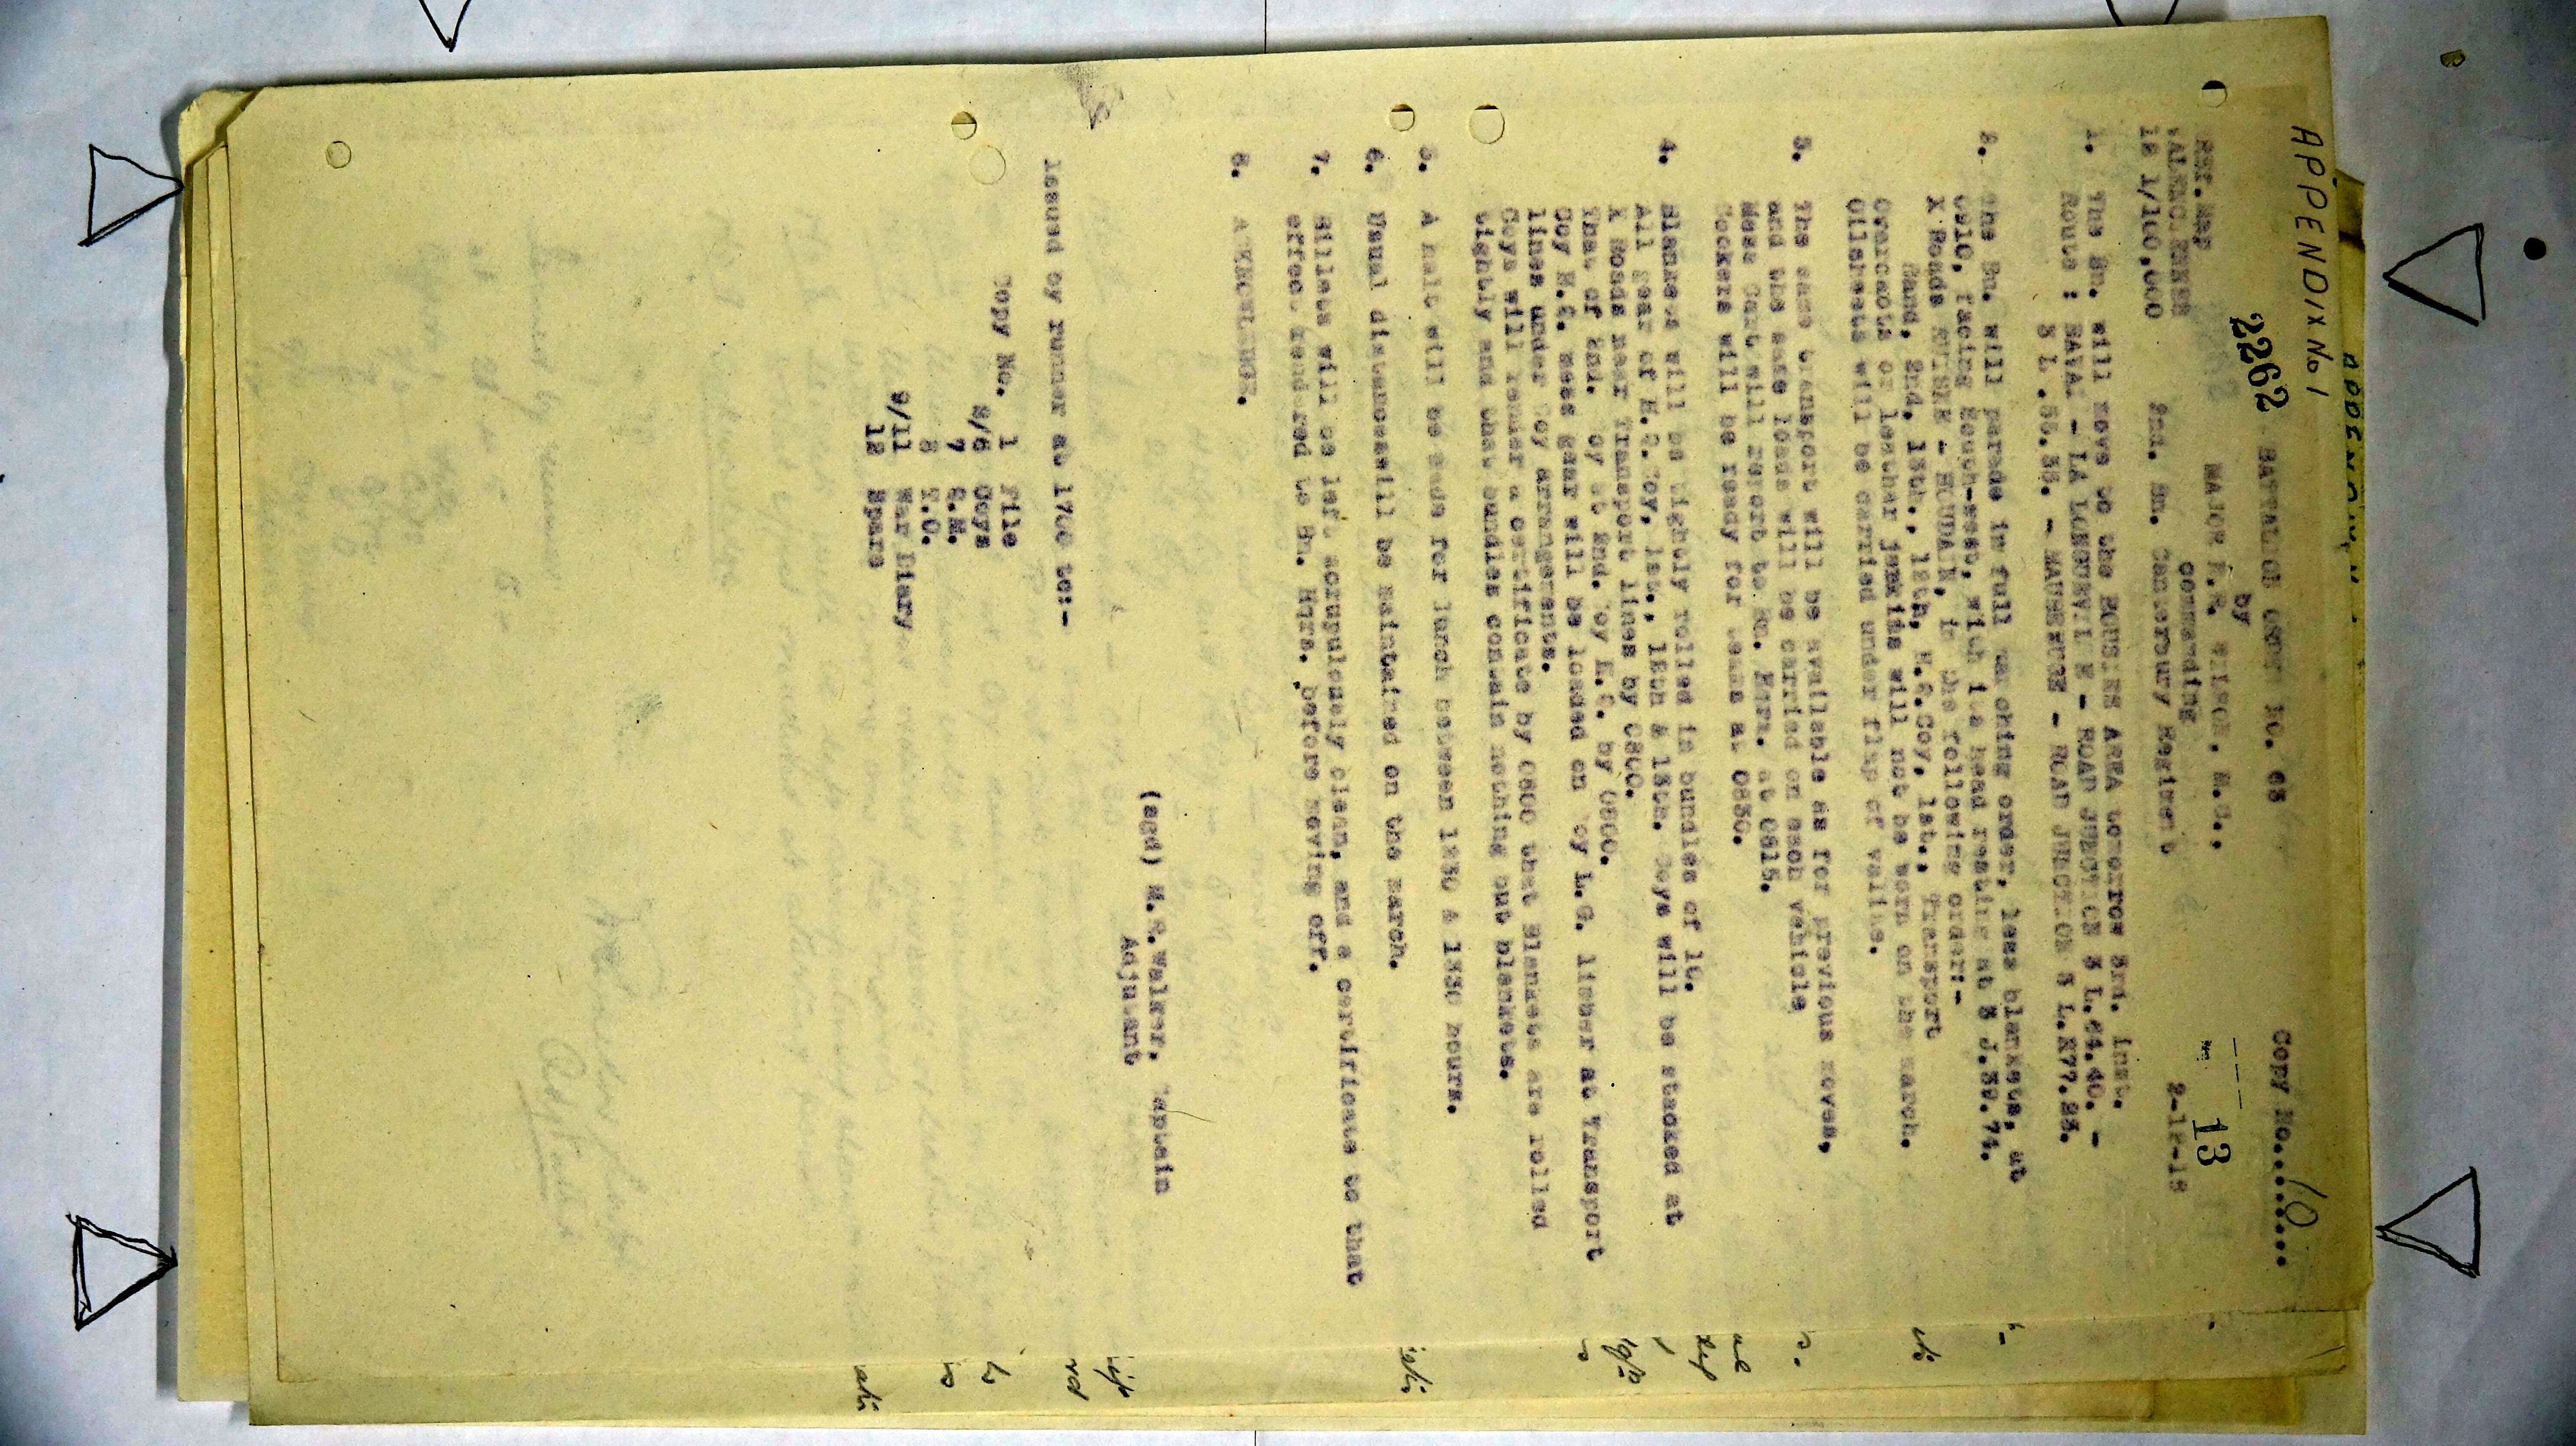 APPENDIX No 1
Copy No. 10
2262 BATTALION ORDER NO. 63
by
MAJOR N.R. WILSON, M.C.,
commanding
2nd. Bn. Canterbury Regiment
13
2-12-18
Ref. Map
VALENCIENNES
12 1/100,000
1. The Bn. will move to the BOUSIES AREA tomorrow 3rd. inst.
Route : BAVAI - LA LONGUEVILLE - ROAD JUNCTION 3 L.64.40. -
3 L .55.35. - MAUBEUGE - ROAD JUNCTION 3 L.
2. The Bn. will parade in full marching order, less blankets, at
0910, facing South-west, with its head resting at 3 J.39.74.
X Roads - in the following order:-
Band, 2nd, 13th., 12th, H.Q.Coy, 1st., Transport
Overcoats or leather jerkins will not be worn on the march.
Oilsheets will be carried under flap of valise.
3. The same transport will be available as for previous moves,
and the same loads will be carried on each vehicle
Mess Cart will report to Bn. Hqrs. at 0815.
Cookers will be ready for teams at 0830.
4. Blankets will be tightly rolled in bundles of 10.
All gear of H.Q.Coy, 1st., 12th & 13th. Coys will be stacked at
X Roads near Transport lines by 0800.
That of 2nd. Coy at 2nd. Coy H.Q. by 0800.
Coy H.Q. mess gear will be loaded on Coy L.G. limber at Transport
lines under Coy arrangements.
Coys will render a certificate by 0800 that Blankets are rolled
tightly and that bundles contain nothing but blankets.
5. A halt will be made for lunch between 1230 & 1330 hours.
6. Usual distances will be maintained on the march.
7. Billets will be left scrupulously clean, and a certificate to that
effect rendered to Bn. Hqrs. before moving off.
8. ACKNOWLEDGE.
(sgd) M.G. Walker, Captain
Adjutant
Issued by runner at 1700 to:-
Copy No. 1 File
2/6 Coys
7 Q.M.
8 T.O.
9/11 War Diary
12 Spare